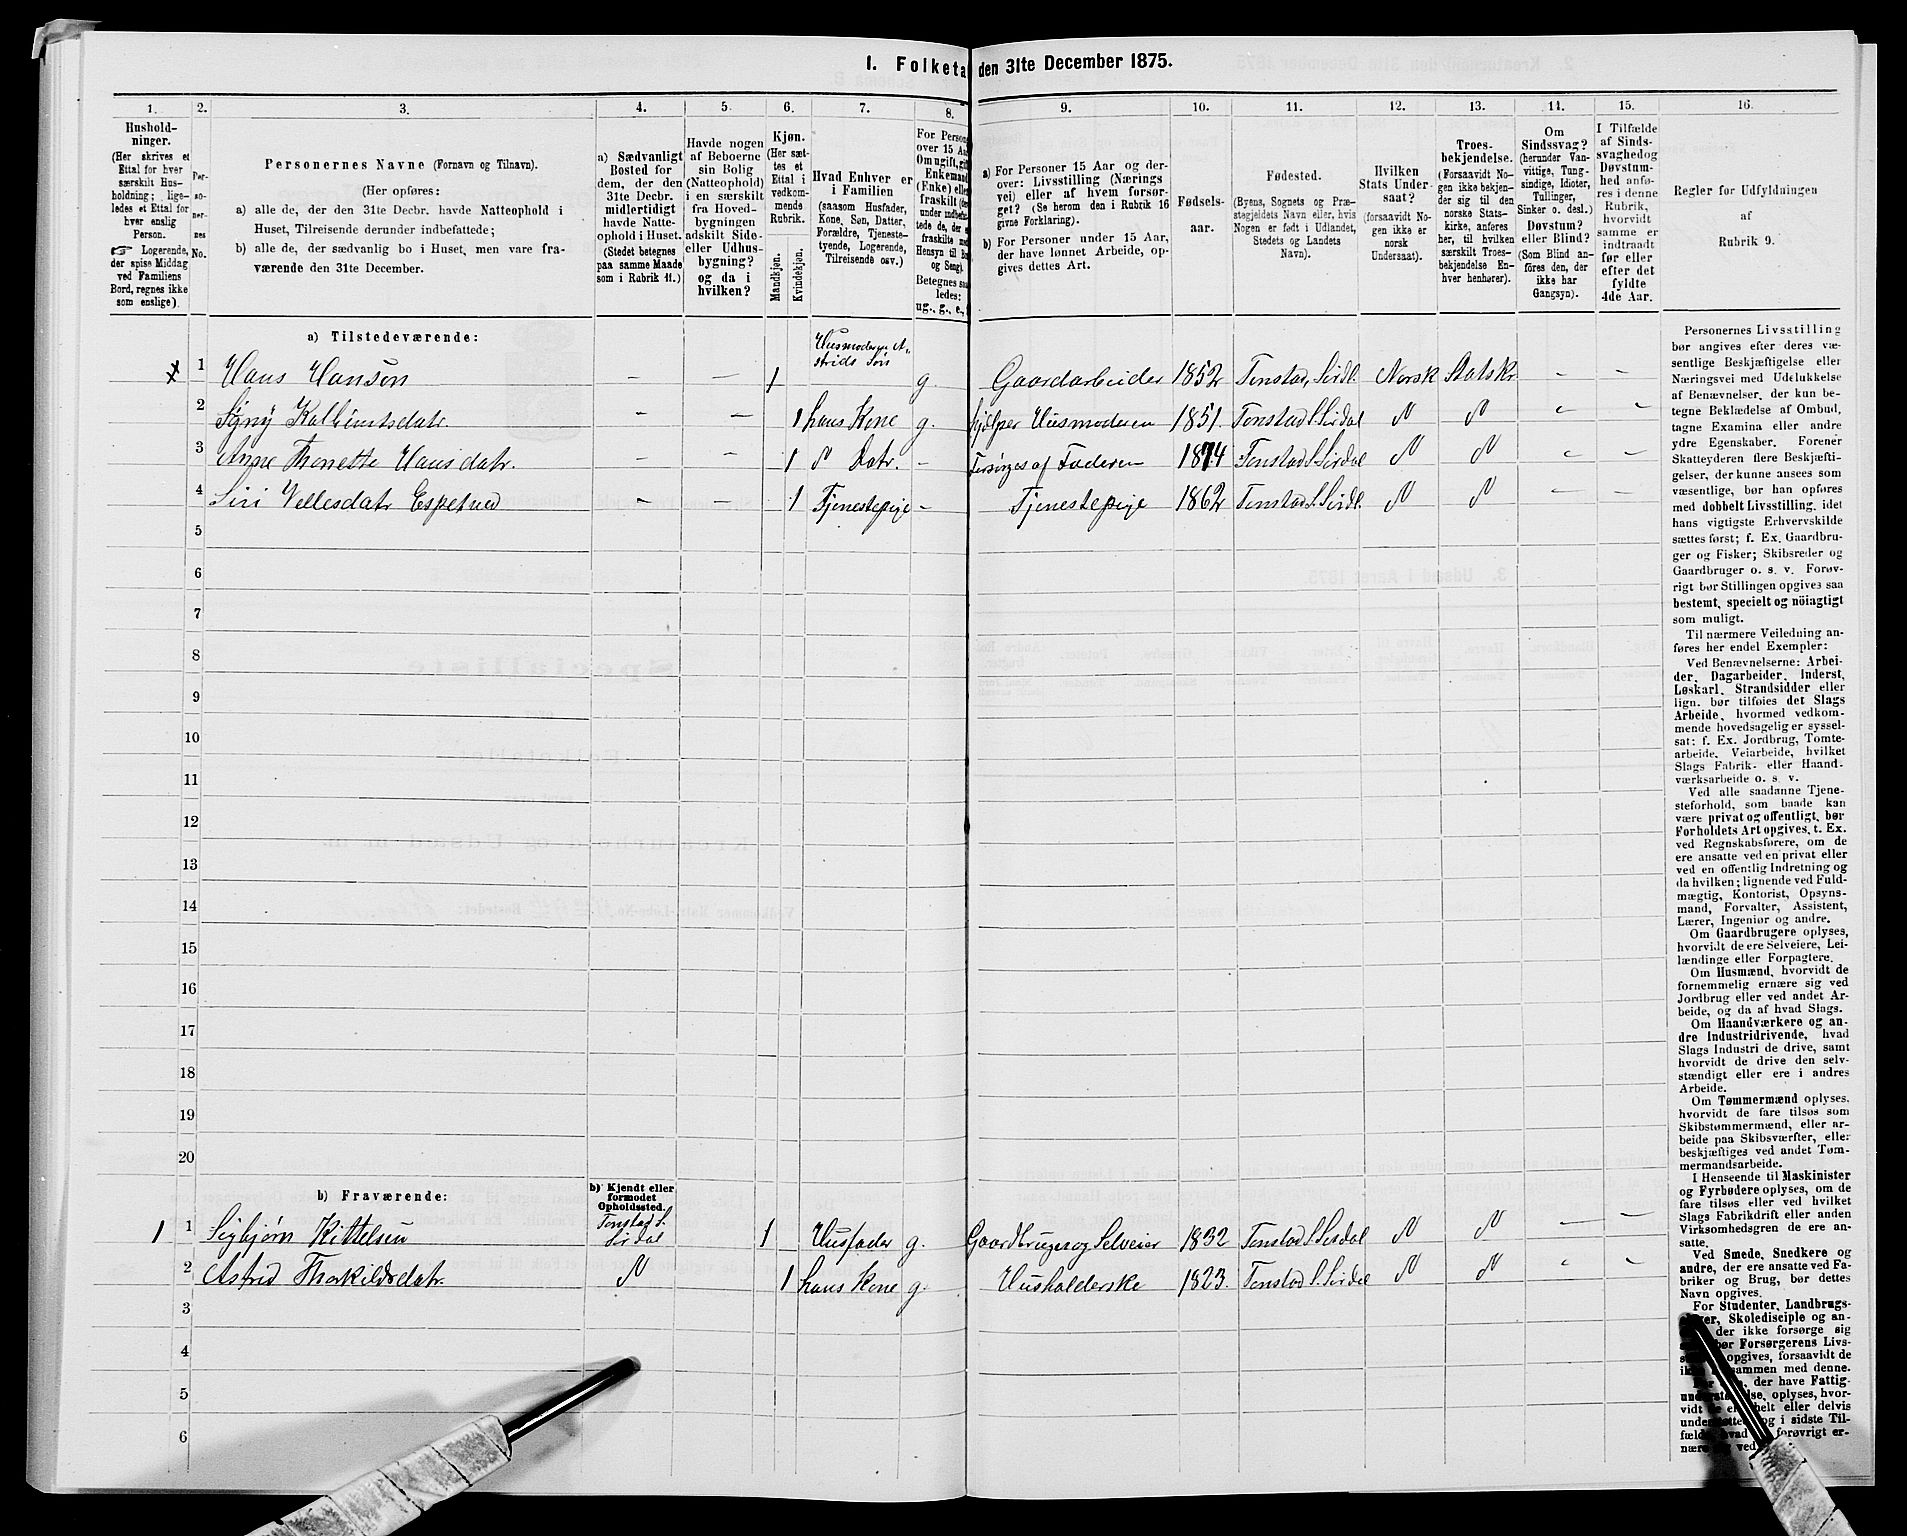 1. Folketa den 31te December 1875.
1. 2. 3. 4. 5. 6. 7. 8. 9. 10. 11. 12. 13. 14. 15. 16.
Hushold-
ninger.
(Her skrives et
Ettal for hver
særskilt Hus-
holdning; lige-
ledes et Ettal for
hver enslig
Person.
☞ Logerende,
der spise Middag
ved Familiens
Bord, regnes ikke
som enslige).
Per-
so-
ner-
nes
No.
Personernes Navne (Fornavn og Tilnavn).
(Her opføres:
a) alle de, der den 31te Decbr. havde Natteophold i
Huset, Tilreisende derunder indbefattede;
b) alle de, der sædvanlig bo i Huset, men vare fra-
værende den 31te December.
a) Sædvanligt
Bosted for
dem, der den
31te Decbr.
midlertidigt
havde Natte-
ophold i Huset.
(Stedet betegnes
paa samme Maade
som i Rubrik 11.)
Havde nogen
af Beboerne
sin Bolig
(Natteophold)
i en særskilt
fra Hoved-
bygningen
adskilt Side-
eller Udhus-
bygning?
og da i
hvilken?
Kjøn.
(Her sæt-
tes et
Ettal i
vedkom-
mende
Rubrik.
Mandkjøn.
Kvindekjøn.
Hvad Enhver er
i Familien
(saasom Husfader,
Kone, Søn, Datter,
Forældre, Tjeneste-
tyende, Logerende,
Tilreisende osv.)
For Person
over 15 Aa
Om ugift, gif
Enkemand
(Enke) elle
fraskilt (de
under indbefa
tede de, der e
fraskilte m
Hensyn til Bo
og Seng).
Betegnes saa
ledes:
ug., g., e.,
a) For Personer 15 Aar og der-
over: Livsstilling (Nærings
vei) eller af hvem forsør-
get? (Se herom den i Rubrik 16
givne Forklaring).
b) For Personer under 15 Aar,
der have lønnet Arbeide, op-
gives dettes Art.
Fødsels-
aar.
Fødested.
(Byens, Sognets og Præ-
stegjeldets Navn eller, hvis
Nogen er født i Udlandet,
Stedets og Landets
Navn).
Hvilken
Stats Under-
saat?
(forsaavidt No-
gen ikke er
norsk
Undersaat).
Troes-
bekjendelse.
(Forsaavidt No-
gen ikke bekjen-
der sig til den
norske Stats-
kirke, anføres
her, til hvilken
særskilt Troes-
bekjendelse En-
hver henhører).
Om
Sindssvag?
(herunder Van-
vittige, Tung-
sindige, Idioter,
Tullinger,
Sinker o. desl.)
Døvstum?
eller Blind?
(Som Blind an-
føres den, der
ikke har
Gangsyn).
I Tilfælde
af Sinds-
svaghed og
Døvstum-
hed anfø-
res i denne
Rubrik,
hvorvidt
samme er
indtraadt
før eller
efter det
fyldte
4de Aar.
Regler for Udfyldningen
af
Rubrik 9.
a) Tilstedeværende:
1 Hans Hanson — — 1 Husmoderen A- strids Søn g Gaardarbeider 1852 Tonstad, Sirdl. Norsk Statskr. — —
2 Signy Kolbentsdatr. — — 1 hans Kone g. hjælper Husmoderen 1851. Tonstad S. Sirdal
3 Anne Thonette Hansdatr. — — 1 Datr. — Forsørges af Faderen 1874 Tonstad S. Sirdal — —
4 Siri Vellesdatr — — 1 Tjenestepige — Tjenestepige 1862 Tonstad S. Sirdl. — —
5
6
7
8
9
10
11
12
13
14
15
16
17
18
19
20
b) Fraværende:
b) Kjendt eller
formodet
Opholdssted.
1 1 Sigbjørn Kittelsen Tonstad S. Sirdal 1 Husfader g. Gaardbruger og Selveier 1832 Tonstad S. Sirdal — —
2 Astrid Thorkildsdatr. 1 hans Kone g. Husholderske 1823. Tonstad S. Sirdal
3
4
5
6
Personernes Livsstilling
bør angives efter deres væ-
sentlige Beskjæftigelse eller
Næringsvei med Udelukkelse
af Benævnelser, der kun be-
tegne Beklædelse af Ombud,
tagne Examina eller andre
ydre Egenskaber. Forener
Skatteyderen flere Beskjæfti-
gelser, der kunne ansees som
væsentlige, bør han opføres
med dobbelt Livsstilling, idet
hans vigtigste Erhvervskilde
sættes først; f. Ex. Gaardbru-
ger og Fisker; Skibsreder og
Gaardbruger o. s. v. Forøv-
rigt bør Stillingen opgives saa
bestemt, specielt og nöiagtigt
som muligt.
Til nærmere Veiledning an-
føres her endel Exempler:
Ved Benævnelserne: Arbei-
der, Dagarbeider, Inderst,
Løskarl, Strandsidder eller
lign. bør tilføies det Slags
Arbeide, hvormed vedkom-
mende hovedsagelig er syssel-
sat; f. Ex. Jordbrug, Tomte-
arbeide, Veiarbeide, hvilket
Slags Fabrik- eller Haand-
værksarbeide o. s. v.
Ved alle saadanne Tjene-
steforhold, som baade kan
være privat og offentligt, bør
Forholdets Art opgives, t. Ex.
ved Regnskabsførere, om de
ere ansatte ved en privat eller
ved en offentlig Indretning og
da hvilken; lignende ved Fuld-
mægtig, Kontorist, Opsyns-
mand, Forvalter, Assistent,
Lærer, Ingeniør og andre.
Om Gaardbrugere oplyses,
hvorvidt de ere Selveiere, Lei-
lændinge eller Forpagtere.
Om Husmænd, hvorvidt de
fornemmelig ernære sig ved
Jordbrug eller ved andet Ar-
beide, og da af hvad Slags.
Om Haandværkere og an-
dre Industridrivende, hvad
Slags Industri de drive, samt
hvorvidt de drive den selv-
stændigt eller ere i andres
Arbeide.
Om Tømmermænd oplyses,
hvorvidt de fare tilsøs som
Skibstømmermænd, eller ar-
beide paa Skibsværfter, eller
beskjæftiges ved andet Tøm-
mermandsarbeide.
I Henseende til Maskinister
og Fyrbødere oplyses, om de
fare tilsøs eller ved hvilket
Slags Fabrikdrift eller anden
Virksomhedsgren de ere an-
satte.
Ved Smede, Snedkere og
andre, der ere ansatte ved Fa-
briker og Brug, bør dettes
Navn opgives.
For Studenter, Landbrugs-
elever, Skoledisciple og an-
der ikke forsørge sig
bør Forsørgerens Livs-
opgives, forsaavidt de
sammen med denne.
der have Fattig-
oplyses, hvor-
helt eller delvis
og i sidste Til-
forøvrigt er-